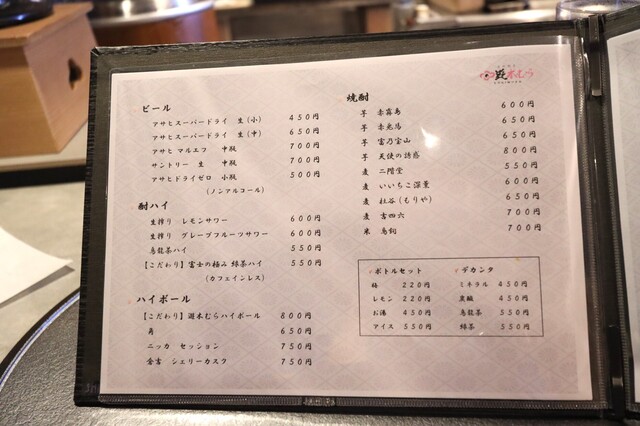 ビール
アサヒスーパードライ 生(小) 450円
アサヒスーパードライ 生(中) 650円
アサヒ マルエフ 中瓶 700円
サントリー 生 中瓶 700円
アサヒドライゼロ 小瓶 500円
(ノンアルコール)
酎ハイ
生搾り レモンサワー 600円
生搾り グレープフルーツサワー 600円
烏龍茶ハイ 550円
【こだわり】富士の極み 緑茶ハイ 550円
(カフェインレス)
ハイボール
【こだわり】遊木むらハイボール 800円
角 650円
ニッカ セッション 750円
倉吉 シェリーカスク 750円
遊木むら
焼酎
芋 赤霧島 600円
芋 赤兎馬 650円
芋 富乃宝山 650円
芋 天使の誘惑 800円
麦 二階堂 550円
麦 いいちこ深薫 600円
麦 杜谷(もりや) 650円
麦 吉四六 700円
米 鳥飼 700円
ボトルセット
梅 220円
レモン 220円
お湯 450円
アイス 550円
デカンタ
ミネラル 450円
炭酸 450円
烏龍茶 550円
緑茶 550円